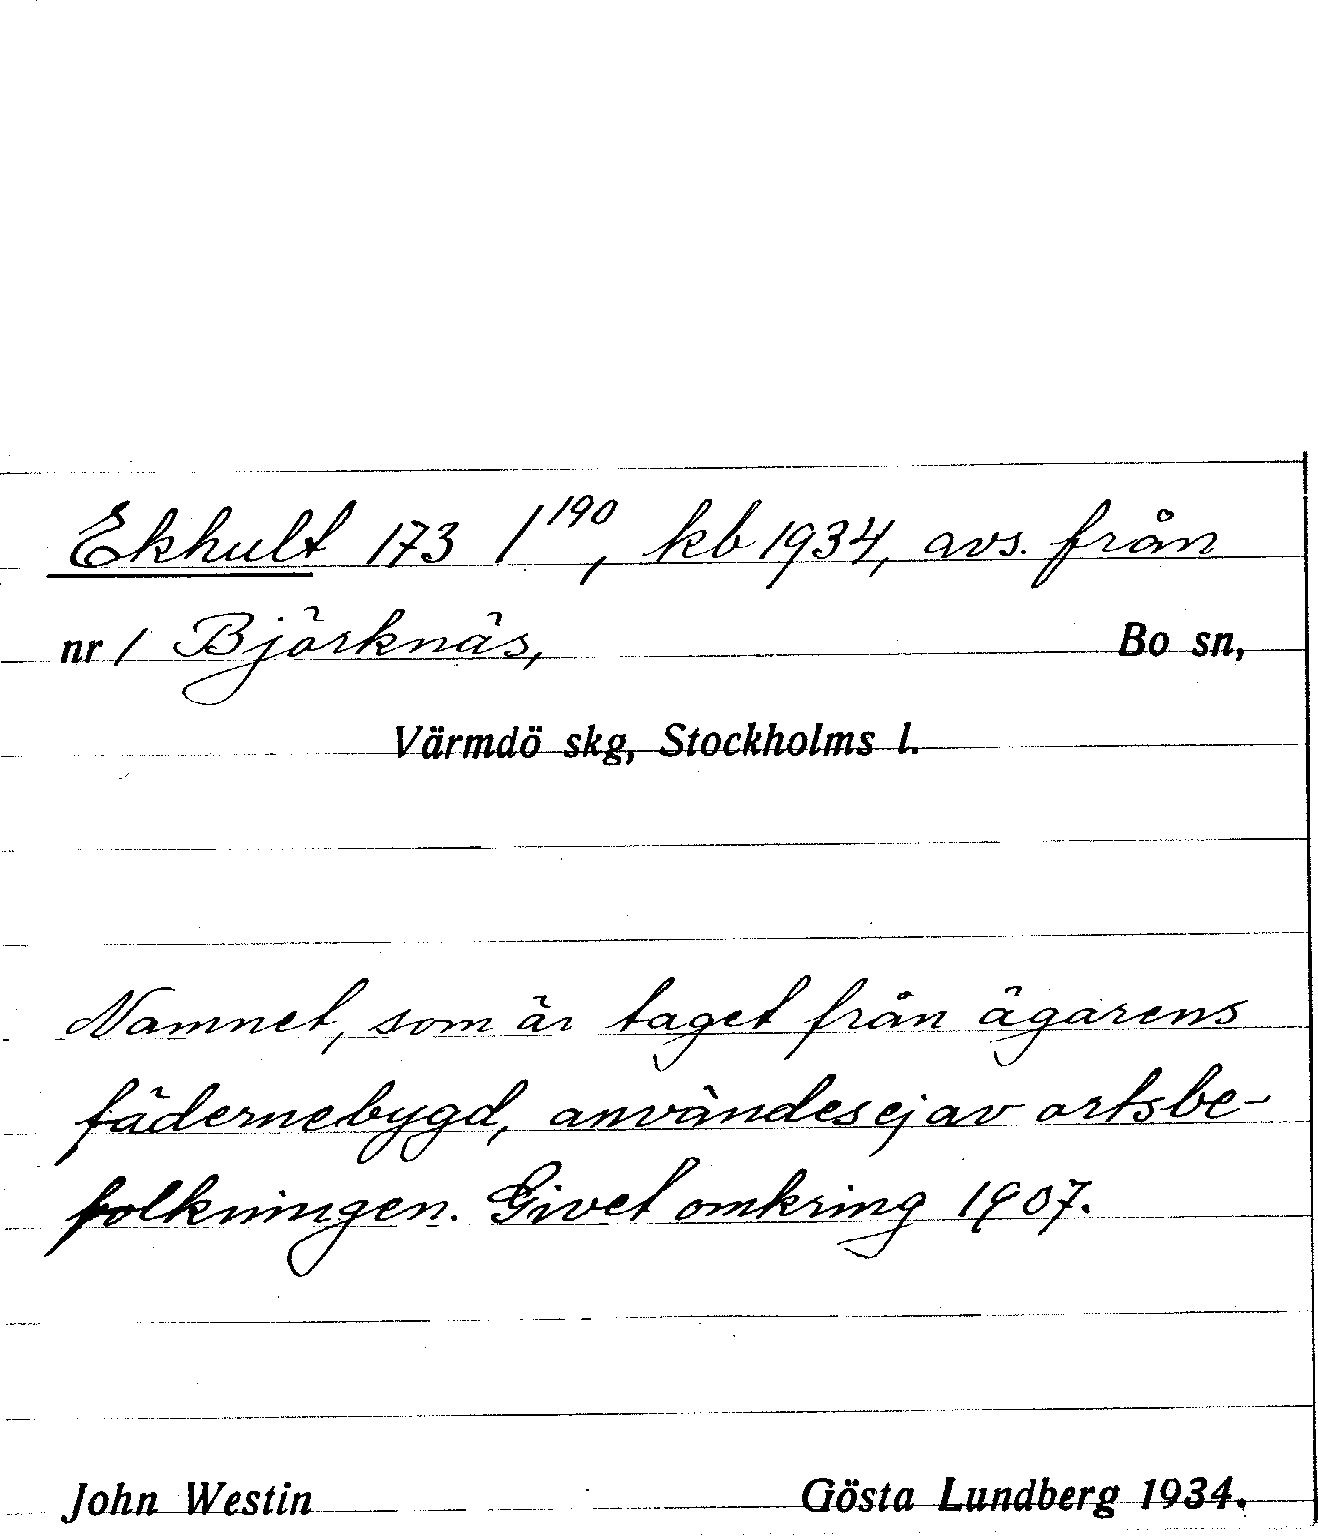 Ekhult 173 1¹⁹⁰, kb 1934, avs. från
nr 1 Björknäs, Bo sn,
Värmdö skg, Stockholms l.
Namnet, som är taget från ägarens
fädernebygd, användes ej av ortsbe-
folkningen. Givet omkring 1907.
John Westin Gösta Lundberg 1934.